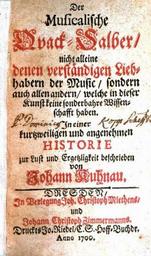 Der
Musicalische
Quack-Salber/
nicht alleine
denen verständigen Lieb-
habern der Music/ sondern
auch allen andern/ welche in dieser
Kunst keine sonderbahre Wissen-
schafft haben.
In einer
kurtzweiligen und angenehmen
HISTORIE
zur Lust und Ergetzligkeit beschrieben
von
Johann Kuhnau.
DRESDEN/
In Verlegung Joh. Christoph Miethens/
und
Johann Christoph Zimmermanns.
Druckts Joh. Riedel/ C. S. Hoff-Buchdr.
Anno 1700.